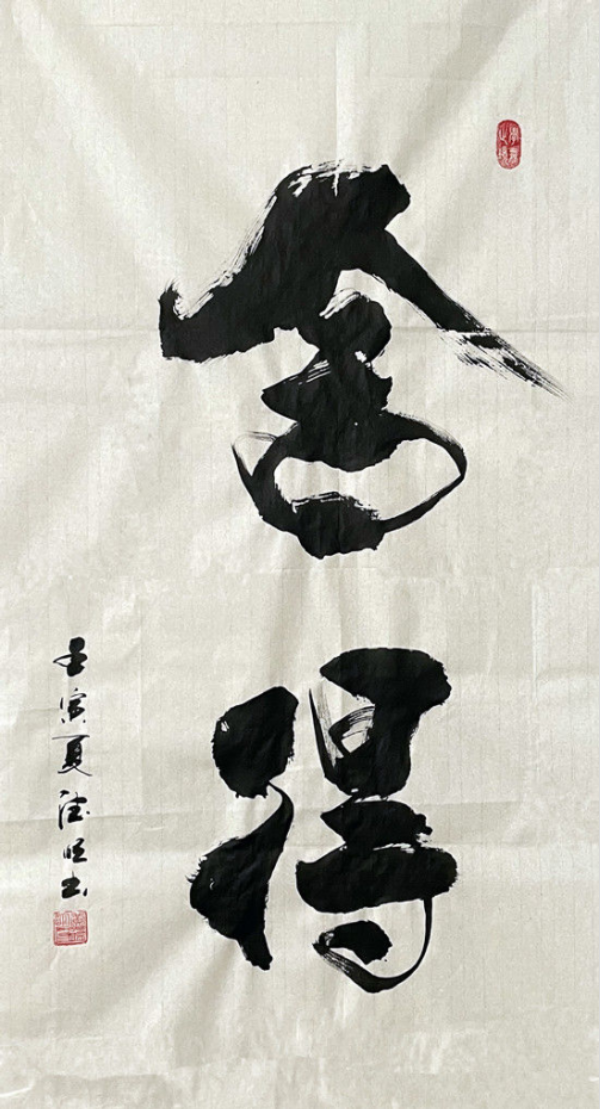 舍得
壬寅夏德旺书